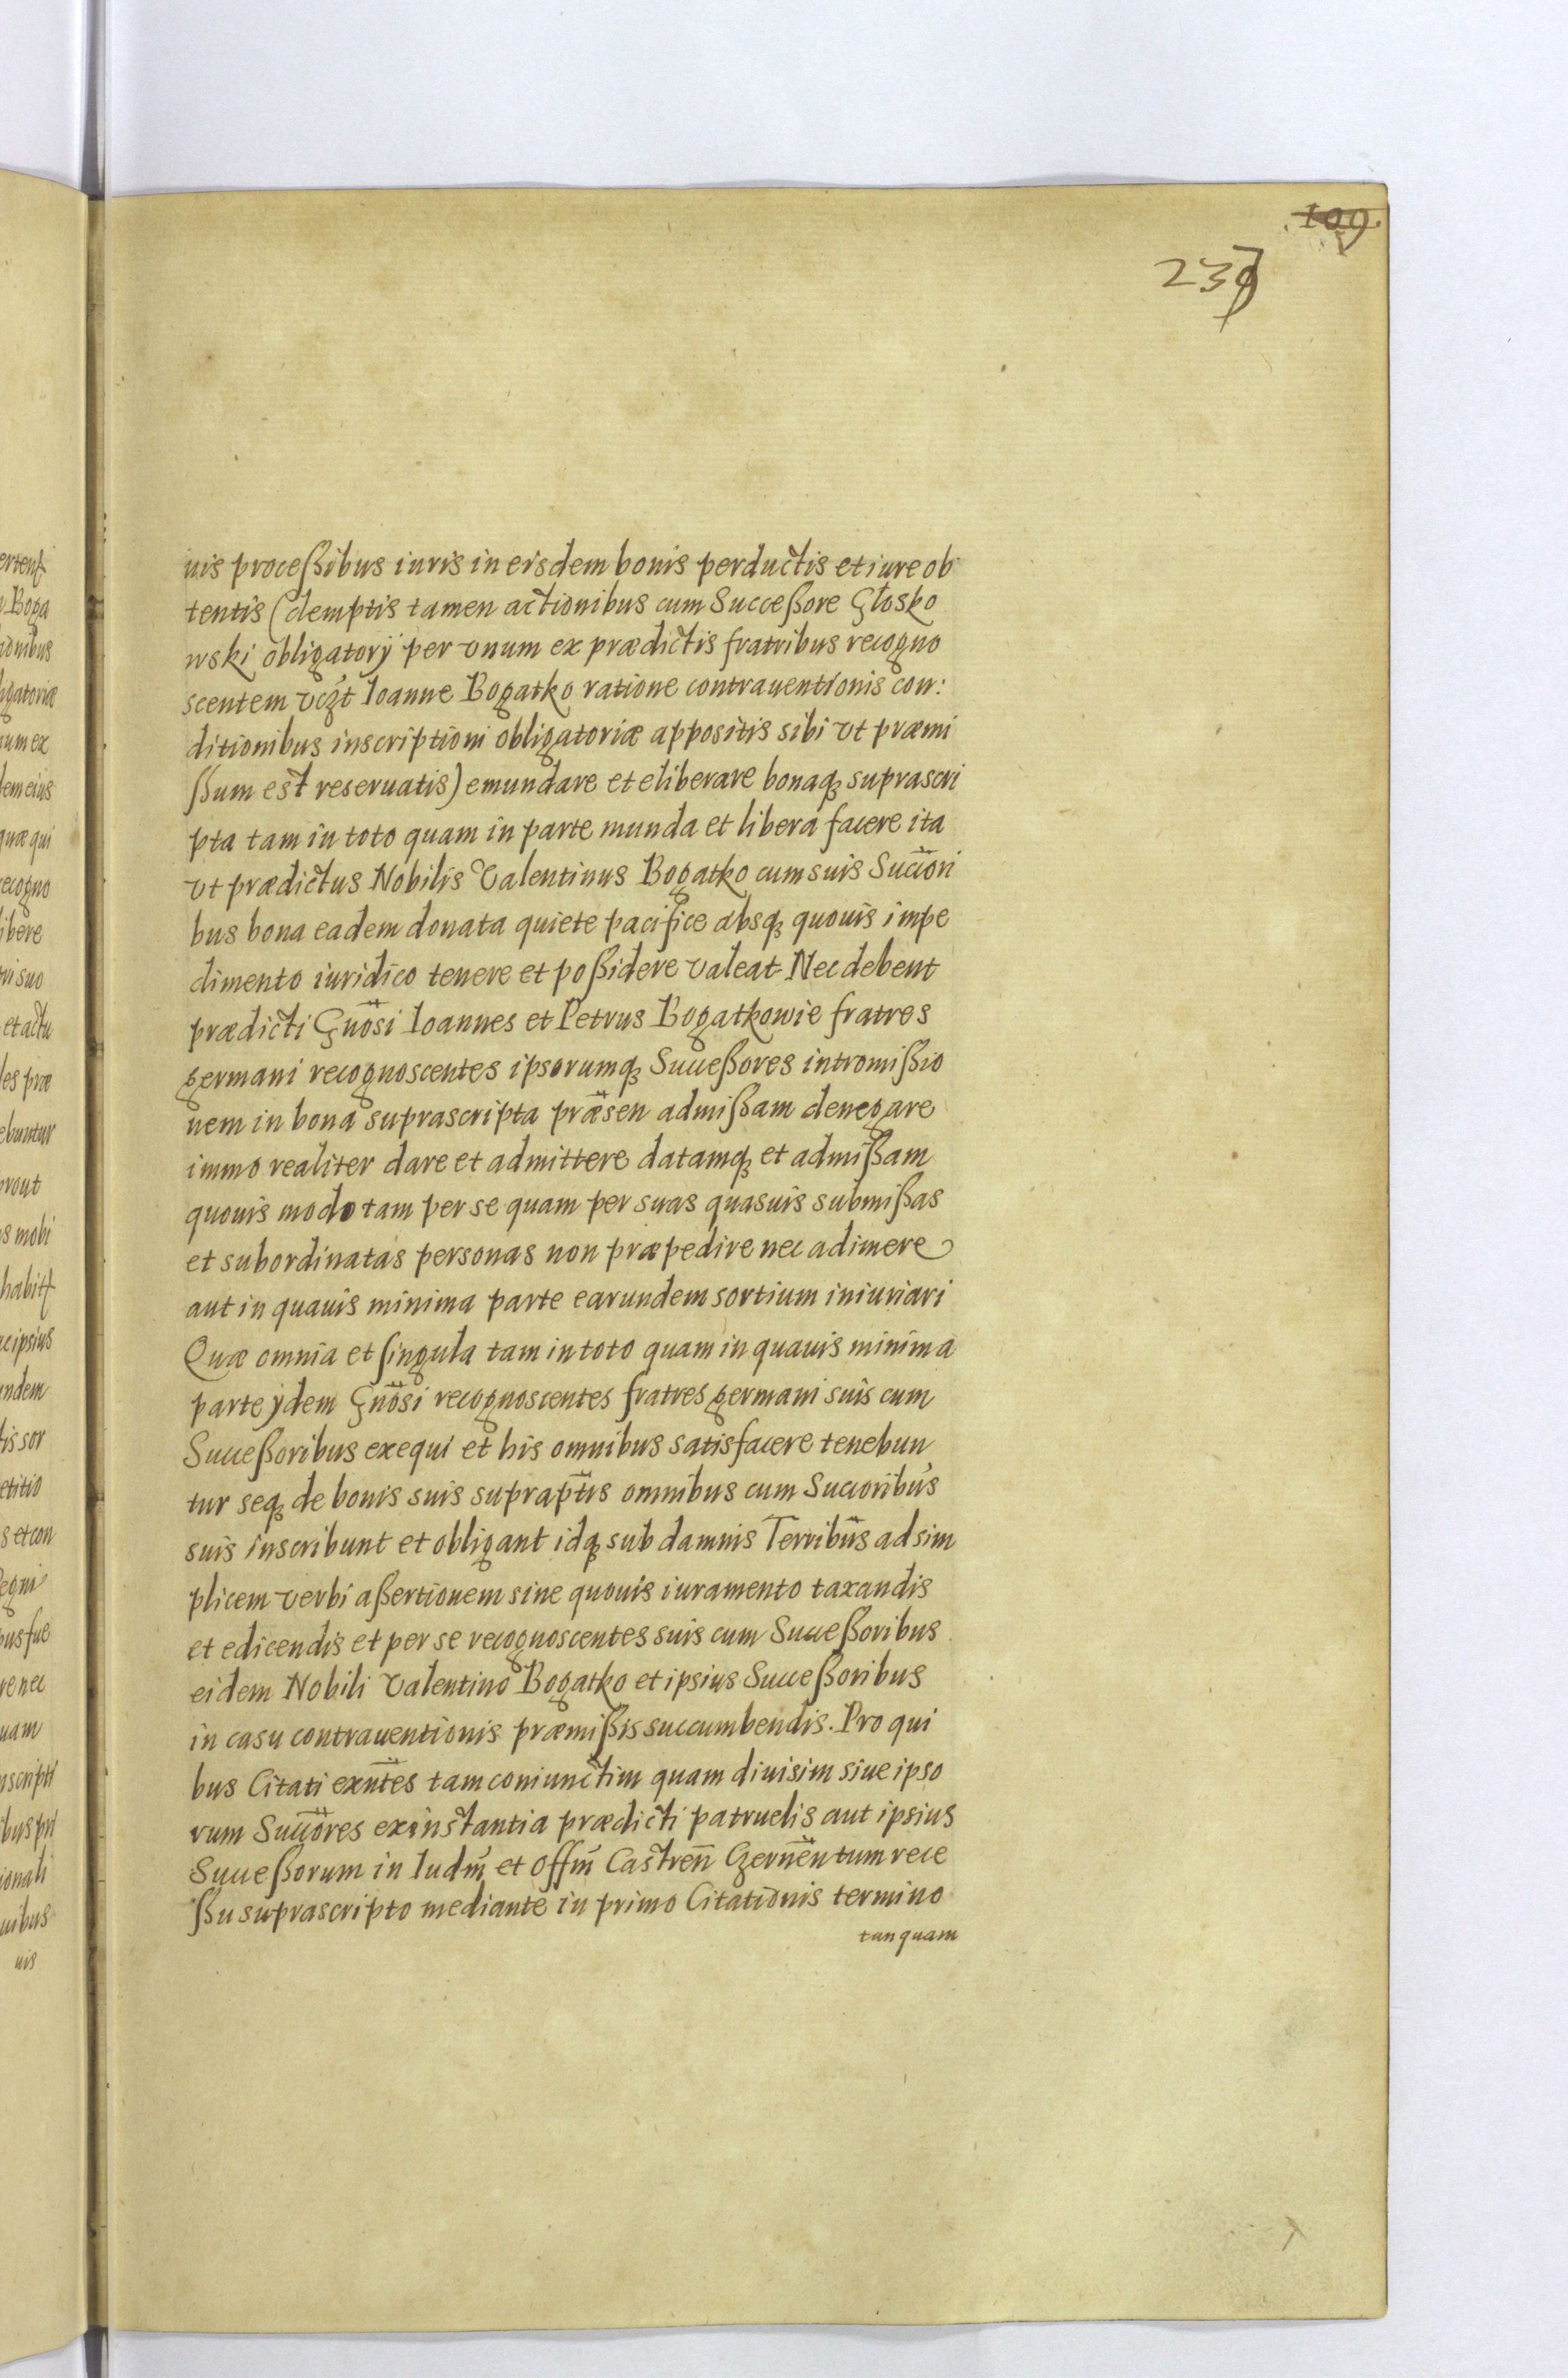 109.
237
uis proceßibus iuris in eisdem bonis perductis et iure ob
tentis (demptis tamen actionibus cum Succeßore Głosko
wski obligatorÿ per vnum ex prædictis fratribus recogno
scentem vczt Ioanne Bogatko ratione contrauentionis con:
ditionibus inscriptioni obligatoriæ appositis sibi vt præmi
ßum est reseruatis) emundare et eliberare bonaq; suprascri
pta tam in toto quam in parte munda et libera facere ita
vt prædictus Nobilis Valentinus Bogatko cum suis Succori
bus bona eadem donata quiete pacifice absq; quouis impe
dimento iuridico tenere et poßidere valeat Nec debent
prædicti Gnosi Ioannes et Petrus Bogatkowie fratres
germani recognoscentes ipsorumq; Succeßores intromißio
nem in bona suprascripta præsen admißam denegare
immo realiter dare et admittere datamq; et admißam
quouis modo tam per se quam per suas quasuis submißas
et subordinatas personas non præpedire nec adimere
aut in quauis minima parte earundem sortium iniuriari
Quæ omnia et singula tam in toto quam in quauis minima
parte ÿdem Gnosi recognoscentes fratres germani suis cum
Succeßoribus exequi et his omnibus satisfacere tenebun
tur seq; de bonis suis supraptis omnibus cum Succoribus
suis inscribunt et obligant idq; sub damnis Terribus ad sim
plicem verbi aßertionem sine quouis iuramento taxandis
et edicendis et per se recognoscentes suis cum Succeßoribus
eidem Nobili Valentino Bogatko et ipsius Succeßoribus
in casu contrauentionis præmißis succumbendis. Pro qui
bus Citati exntes tam coniunctim quam diuisim siue ipso
rum Succores ex instantia prædicti patruelis aut ipsius
Succeßorum in Iudm et Offm Castren Czernen tum rece
ßu suprascripto mediante in primo Citationis termino
tanquam